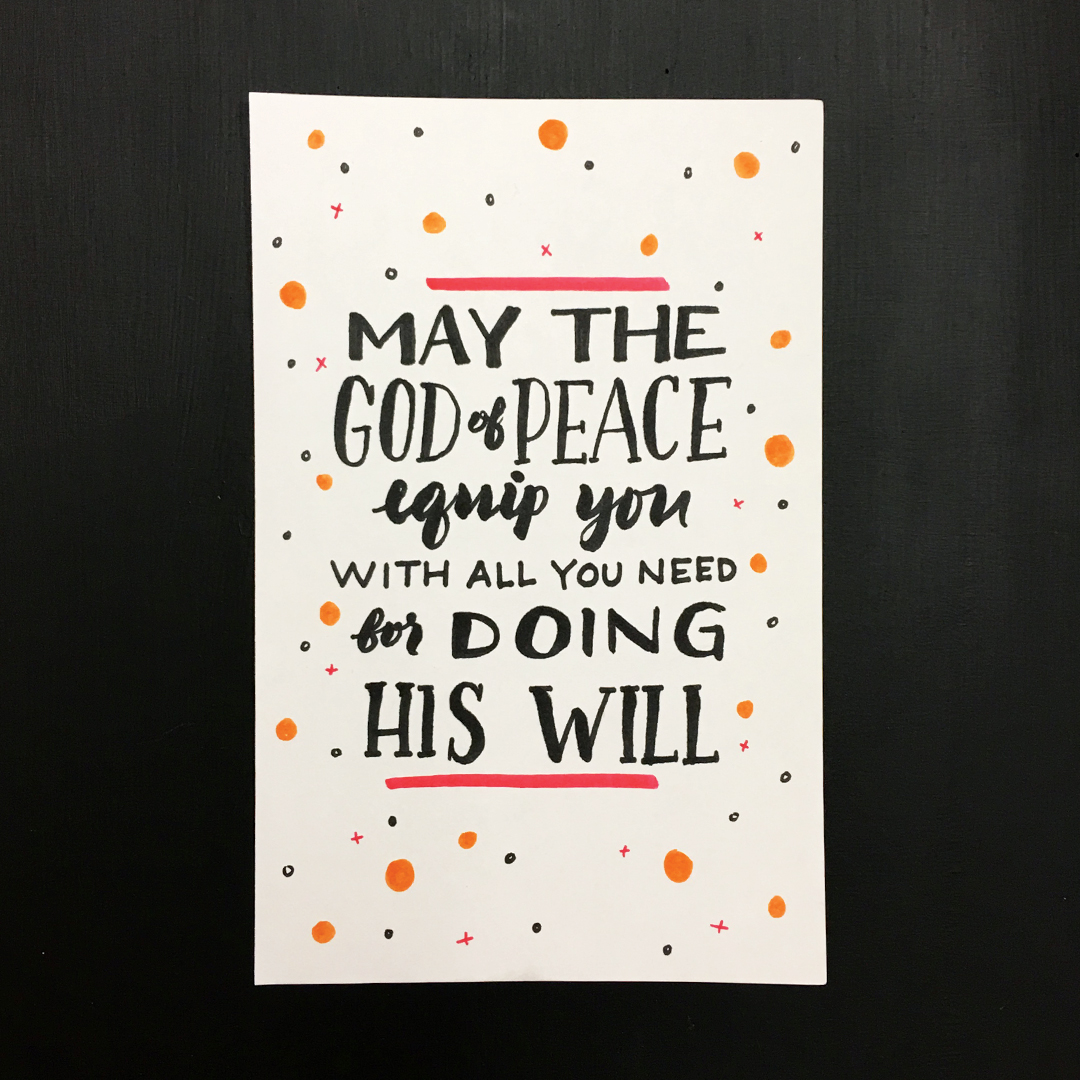 MAY THE
GOD of PEACE
equip you
WITH ALL YOU NEED
for DOING
HIS WILL